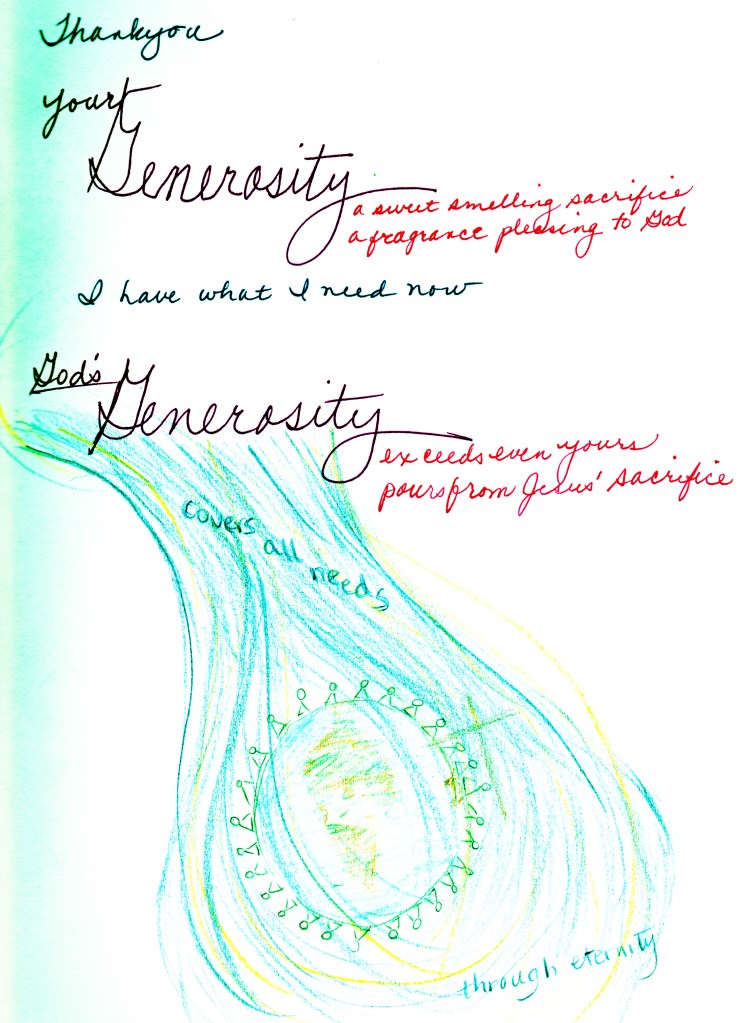 Thankyou
your
Generosity
a sweet smelling sacrifice
a fragrance pleasing to God
I have what I need now
God's
Generosity
exceeds even yours
pours from Jesus' sacrifice
covers
all
needs
through eternity